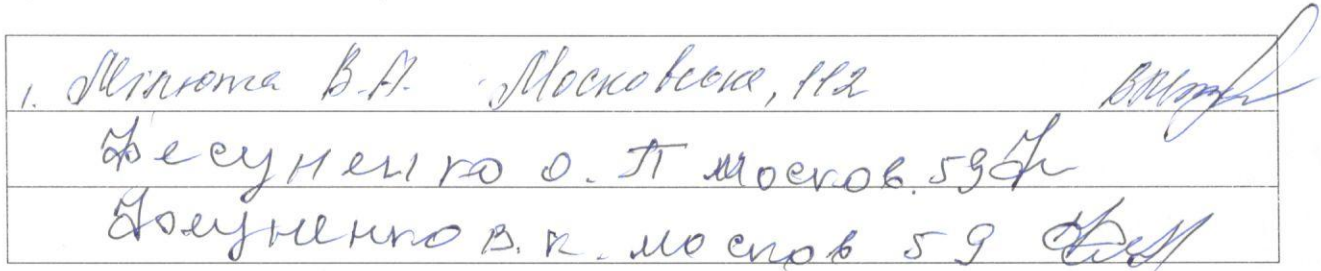 1. Мілюта В.А. Московська, 112
Фесуненко О. П москов. 59
Фесуненко В. К. москов 59